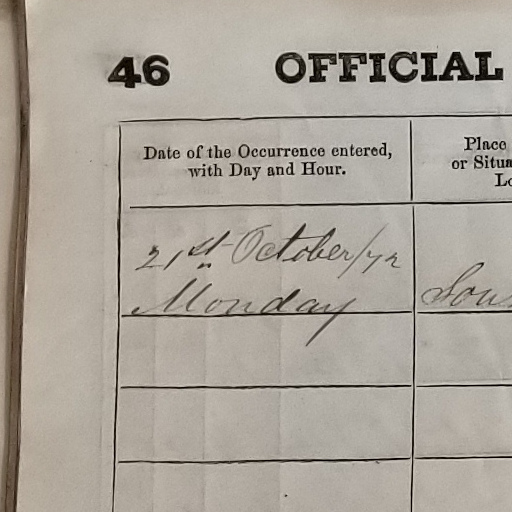 46 OFFICIAL
Date of the Occurrence entered,
with Day and Hour.
Place
or Situa
Lo
21st October/72
Monday
Sou